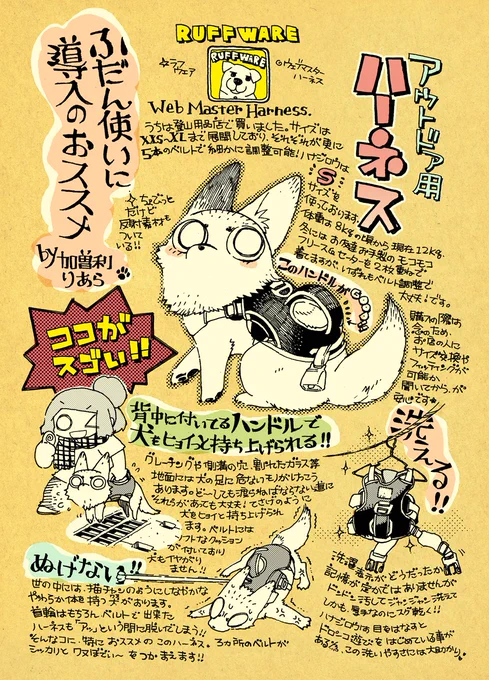 RUFFWARE
RUFFWARE
☆ラフウェア
◎ウェブマスターハーネス
アウトドア用
ハーネス
ふだん使いに
導入のおススメ
by加曽利
りあら
Web Master Harness.
うちは登山用品店で買いました。サイズは
XXS〜XLまで展開しており、それぞれが更に
5本のベルトで細かに調整可能！ハナジロウは
Sサイズを
使っております。
体重は8kgの頃から現在12kg。
冬にはお友達お手製のモコモコ
フリースやセーターを2枚重ねで
着ますが、いずれもベルト調整で
大丈夫です。
☆ちょこっと
だけど
反射素材も
ついて
いる！！
このハンドルが
購入の際は
念のため、
お店の人に
サイズ交換や
フィッティングが
可能か
聞いてからが
安心です
ココが
スゴい!!
背中に付いてるハンドルで
犬をヒョイっと持ち上げられる!!
グレーチングや側溝の穴、割れたガラス等
地面には犬の足に危ないモノがけっこう
あります。どーしても渡らねばならない道に
それらがあっても大丈夫！てさげのように
犬をヒョイと持ち上げられ
ます。ベルトには
ソフトなクッション
が付いており
犬もイヤがり
ません!!
洗える!!
洗濯表示がどうだったか
記憶が定かではありませんが
ドンドン汚してジャンジャン洗えて
しかも、夏季なのにスグ乾く!!
ハナジロウは目をはなすと
ドロンコ遊びをはじめている事が
ある為、この洗いやすさには大助かり。
ぬげない!!
世の中には、子猫チャンのようにしなやかな
やわらか体を持つ犬がおります。
首輪はもちろん、ベルトで出来た
ハーネスも「アッ」という間に脱いでしまう!!
そんなコに、特におススメのこのハーネス。3ヵ所のベルトが
シッカリとワヌぼでぃ〜をつかまえます!!